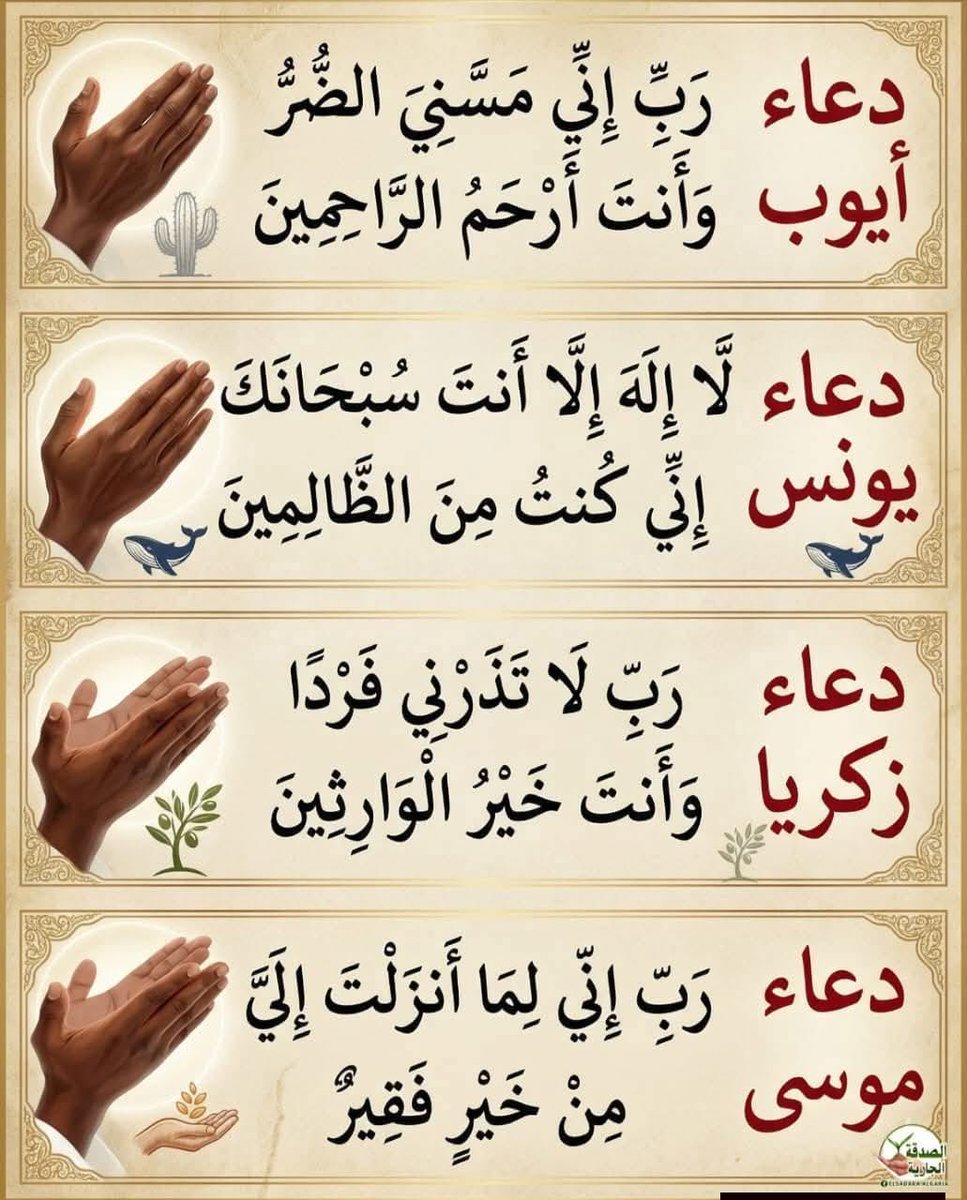 دعاء أيوب
رَبِّ إِنِّي مَسَّنِيَ الضُّرُّ
وَأَنتَ أَرْحَمُ الرَّاحِمِينَ
دعاء يونس
لَّا إِلَهَ إِلَّا أَنتَ سُبْحَانَكَ
إِنِّي كُنتُ مِنَ الظَّالِمِينَ
دعاء زكريا
رَبِّ لَا تَذَرْنِي فَرْدًا
وَأَنتَ خَيْرُ الْوَارِثِينَ
دعاء موسى
رَبِّ إِنِّي لِمَا أَنزَلْتَ إِلَيَّ
مِنْ خَيْرٍ فَقِيرٌ
الصدقة
الجارية